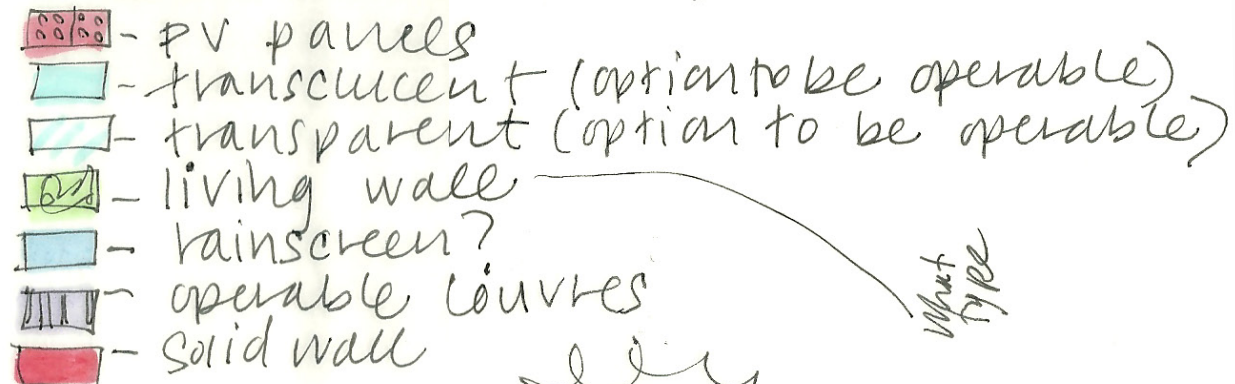 - PV panels
- translucent (option to be operable)
- transparent (option to be operable)
- living wall
- rainscreen?
- operable louvres
- solid wall
What
type